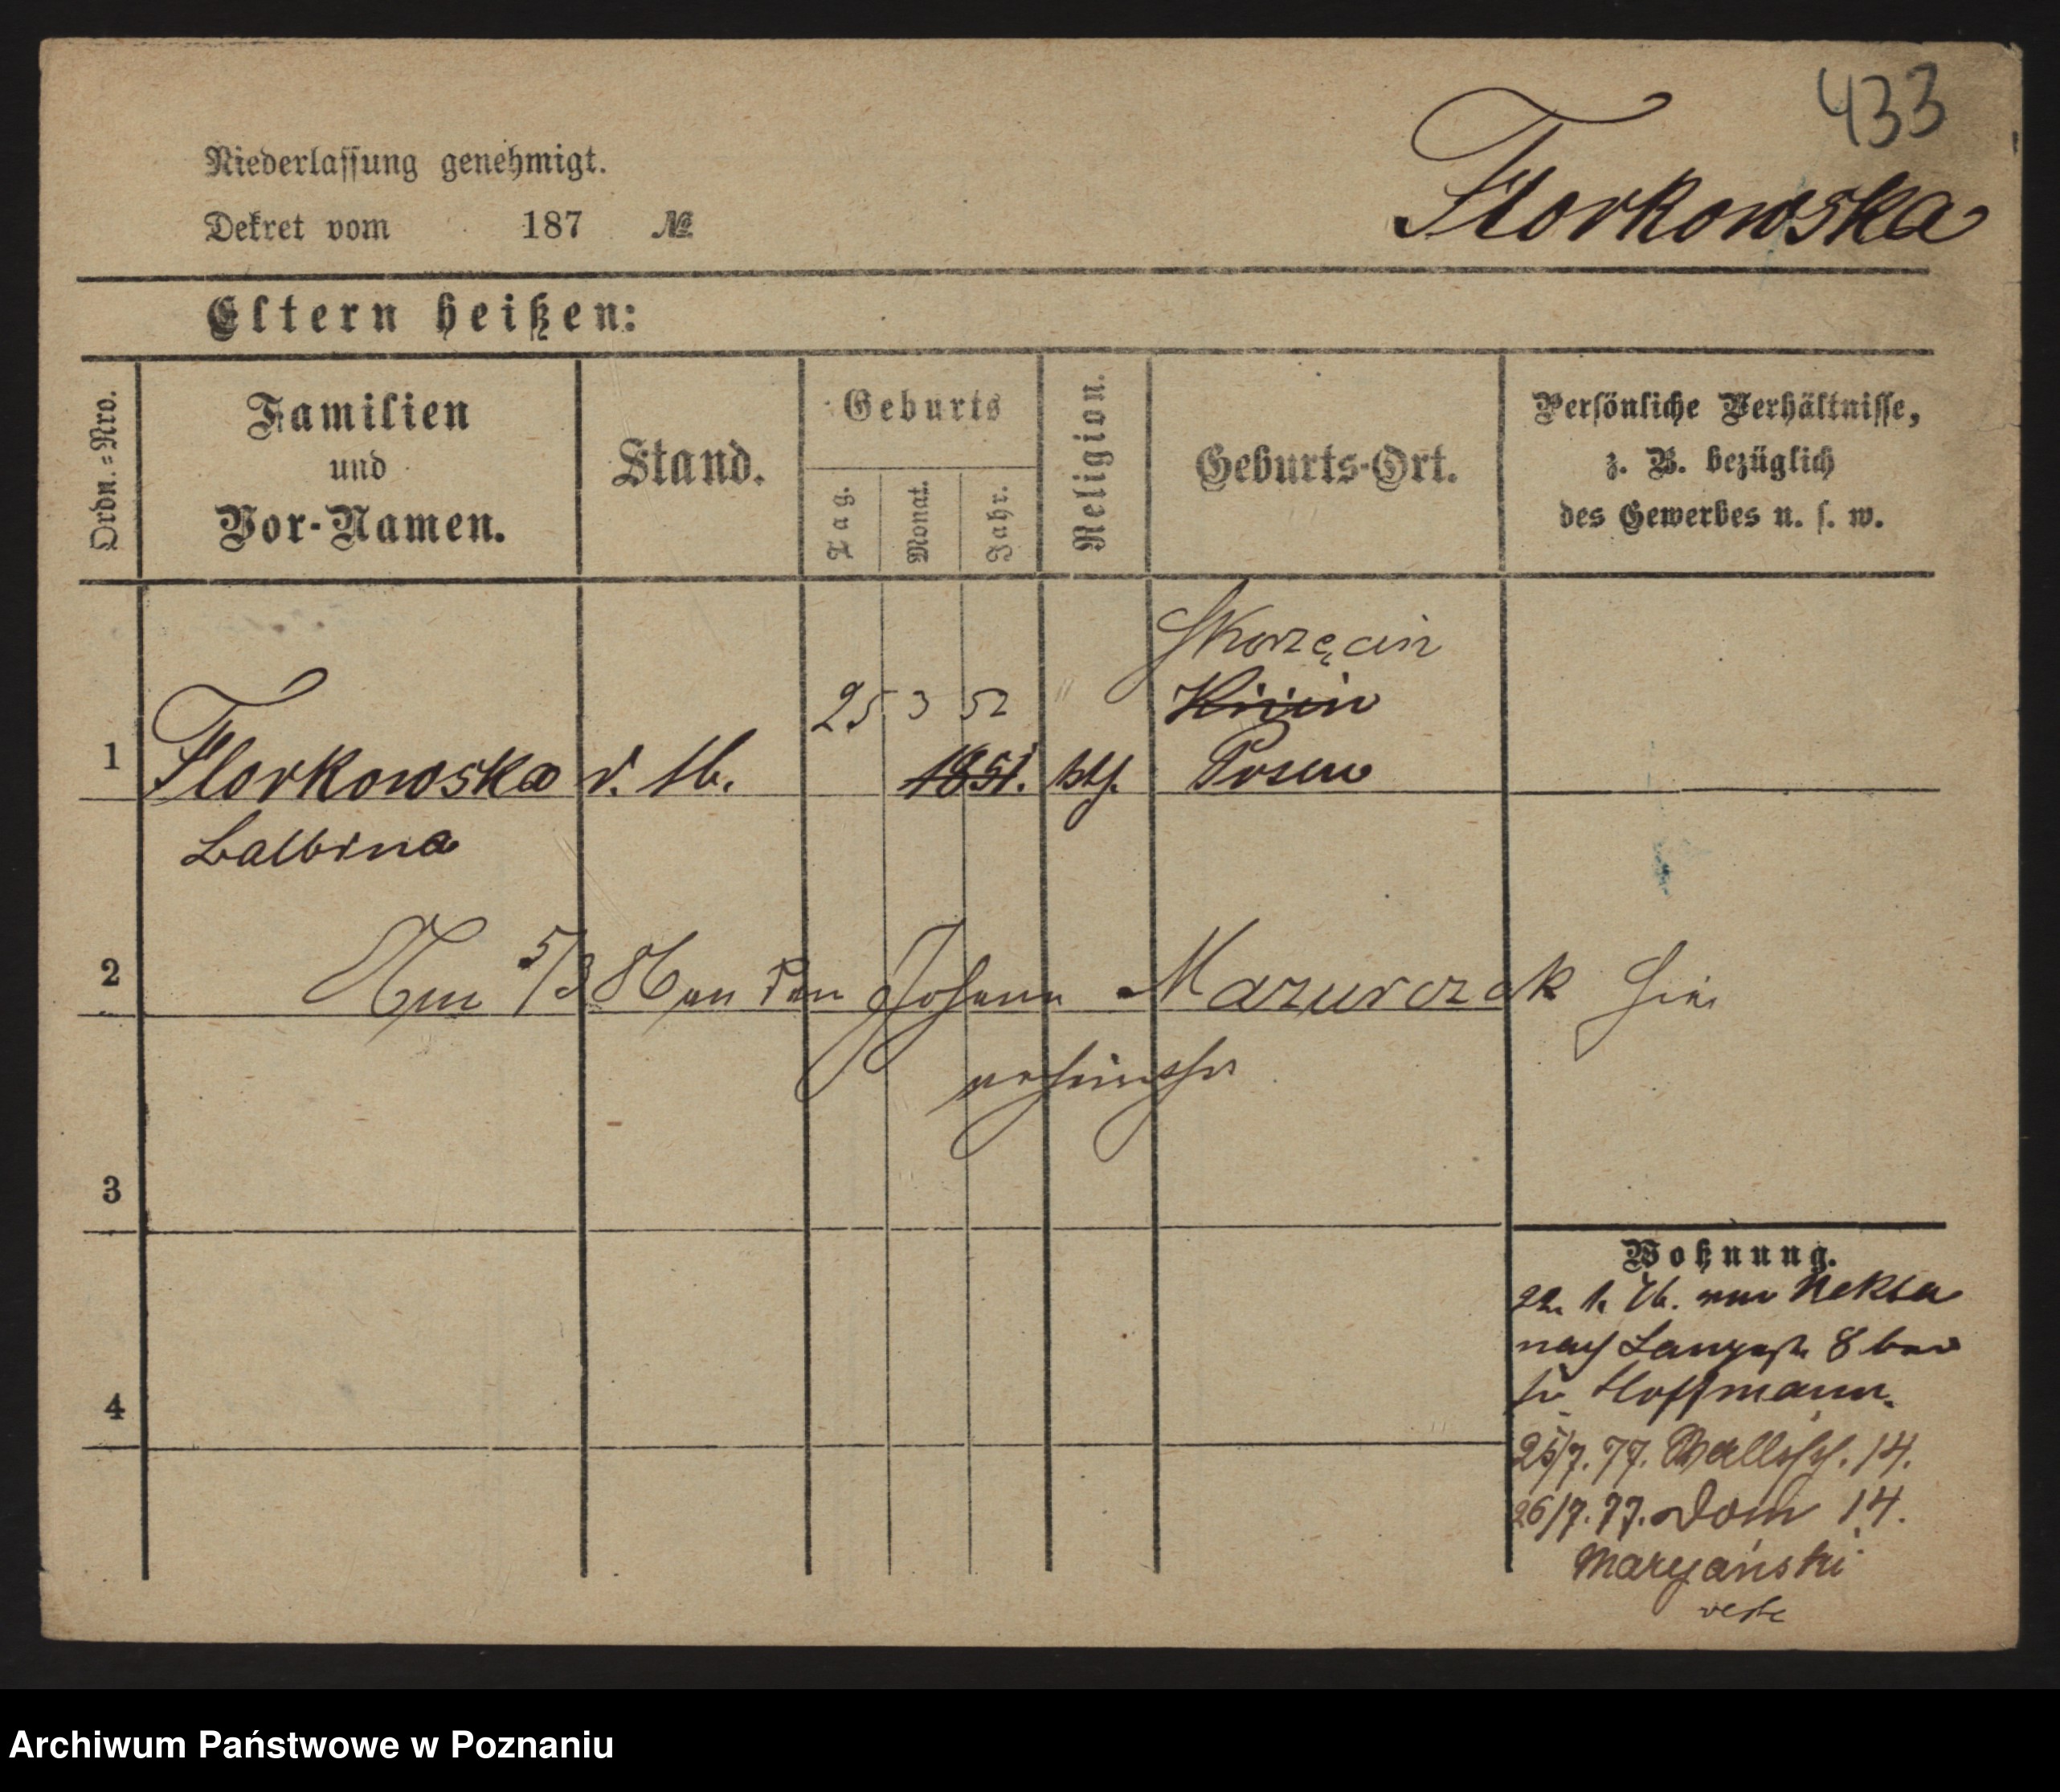 433
Florkowska
Niederlassung genehmigt.
Dekret vom 187 №
Eltern heißen:
Ordn.=Nro.
Familien
und
Vor-Namen.
Stand.
Geburts
Tag.
Monat.
Jahr.
Religion.
Geburts-Ort.
Persönliche Verhältnisse,
z. B. bezüglich
des Gewerbes u. s. w.
Skorzęcin
25 3 52
1 Florkowska 1851. kth. Posen
Balbina
2 Am 5/3 86 an den Johann Mazurczak hier
verheirathet
3
Wohnung.
22. 1. 76. von Nekla
nach Langestr 8 bei
Hoffmann.
4
25/7. 77. Wallisch. 14.
26/7. 77. Dom 14.
Maryański
Archiwum Państwowe w Poznaniu